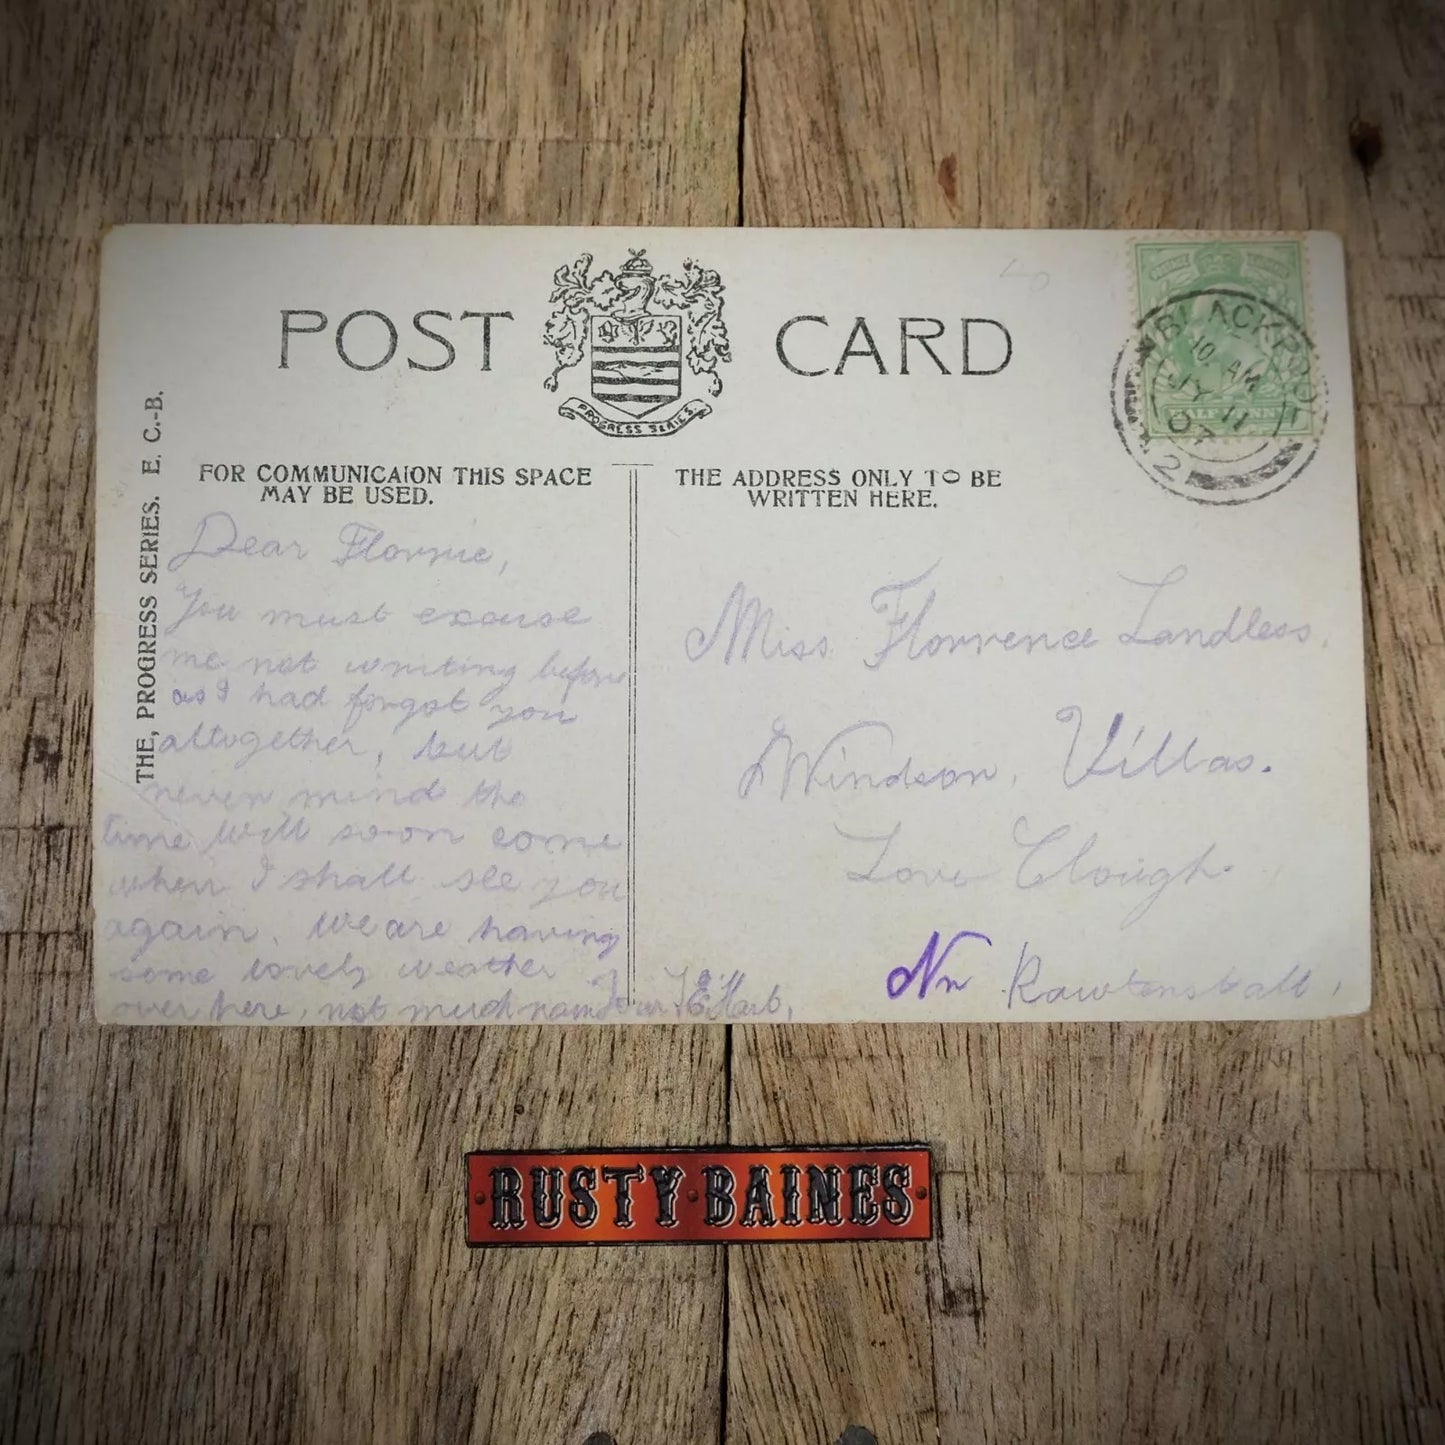 POST CARD
PROGRESS SERIES.
BLACKPOOL
10. AM
JY 11
07
2
HALFPENNY
THE, PROGRESS SERIES. E. C.-B.
FOR COMMUNICAION THIS SPACE
MAY BE USED.
THE ADDRESS ONLY TO BE
WRITTEN HERE.
Dear Florrie,
You must excuse
me not writing before
as I had forgot you
altogether, but
never mind the
time will soon come
when I shall see you
again. We are having
some lovely weather
over here, not much rain
Miss Florrence Landless.
Windsor, Villas.
Love Clough.
Nr Rawtenstall,
RUSTY BAINES